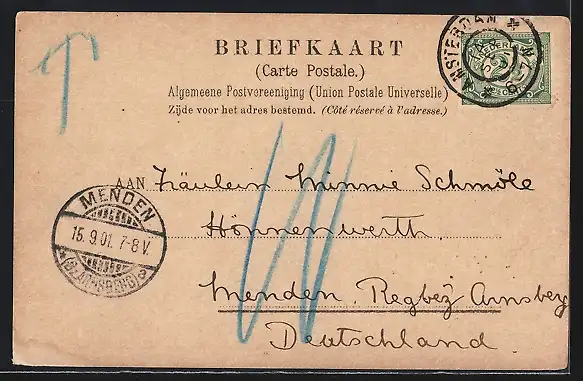 T
BRIEFKAART
(Carte Postale.)
Algemeene Postvereeniging (Union Postale Universelle)
Zijde voor het adres bestemd. (Côté réservé à l'adresse.)
AMSTERDAM
NEDERL
AAN Fräulein Minnie Schmöle
Hönnenwerth.
Menden. Regbez Arnsberg
Deutschland.
MENDEN
15.9.01. 7-8 V.
(BZ. ARNSBERG) a